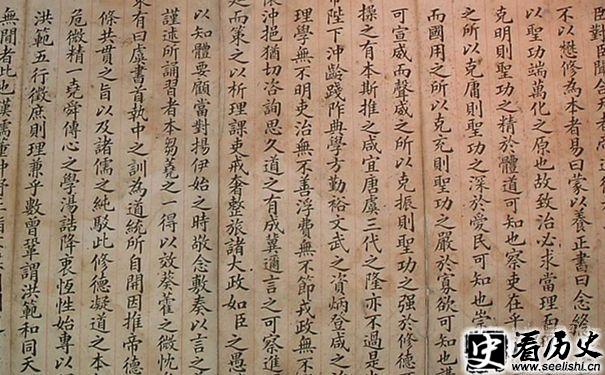 臣對臣聞
不以懋修為本者易曰蒙以養正書曰念終
以聖功端萬化之原也故致治必求當理而
克明則聖功之精於體道可知也察吏在乎
之所以克庸則聖功之深於愛民可知也崇
而國用之所以克充則聖功之嚴於寡欲可知也
可宣威而聲威之所以克振則聖功之强於修德
操之有本斯推之咸宜唐虞三代之隆亦不過是
帝陛下沖齡踐阼典學方勤裕文武之資炳登咸之
理學無不明吏治無不善浮費無不節戎政無不
懷沖挹猶切咨詢思久道之有成冀邇言之可察進
而策之以析理課吏戒奢整旅諸大政如臣之愚
以知體要顧當對揚伊始之時敬念敷奏以言之
謹述所誦習者本芻蕘之一得以放葵藿之微忱
來有曰虞書首執中之訓為道統所自開因推帝德
條共貫之旨以及諸儒之純駁此修德凝道之本
危微精一堯舜傳心之學湯誥降衷恆性始專以
洪範五行徵庶則理兼乎數曾鞏謂洪範和同天
無聞者此也漢儒董仲舒
史 看历史
www.seelishi.cn